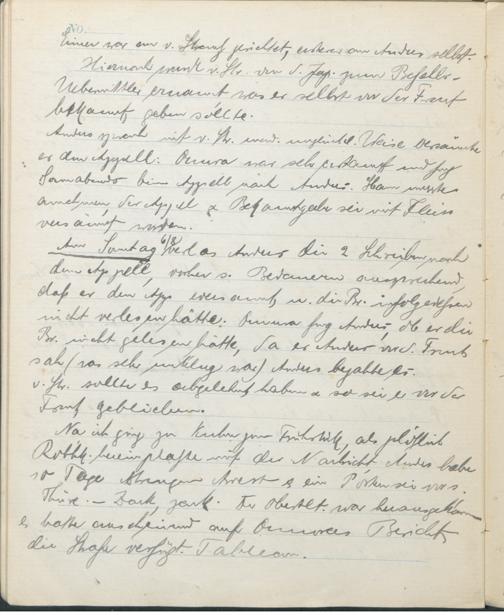 No.
Einer war an v. Strauß gerichtet, ersterer an Anders selbst.
Hiernach wurde v. Str. von d. Jap. zum Befehls-
Uebermittler ernannt was er selbst vor der Front
bekannt geben sollte.
Anders sprach mit v. Str. und Weise versäumte
er den Appell. Omura war sehr und frug
Sonnabends beim Appell nach Anders. Man musste
annehmen der Appell & Bekanntgabe sei mit Fleiss
versäumt worden.
Am Sontag 6/8 verlas Anders die 2 Schreiben nach
dem Appell, vorher s. Bedauern aussprechend,
daß er den App. versäumt u. die Br. infolgedessen
nicht verlesen hätte. Omura frug Anders, ob er die
Br. nicht gelesen hätte, da er Anders vor d. Front
sah (was sehr unklug war) Anders bejahte es.
v. Str. sollte es abgelehnt haben & so sei er vor der
Front geblieben.
Na ich ging zu zum Frühstück, als plötzlich
hereinplatzte mit der Nachricht Anders habe
10 Tage strengen Arrest & ein Posten sei vors.
Thüre. — Zack, zack. Der Oberstlt. war
er hatte anscheinend auf Omuras Bericht
die Strafe verfügt. Tableau.